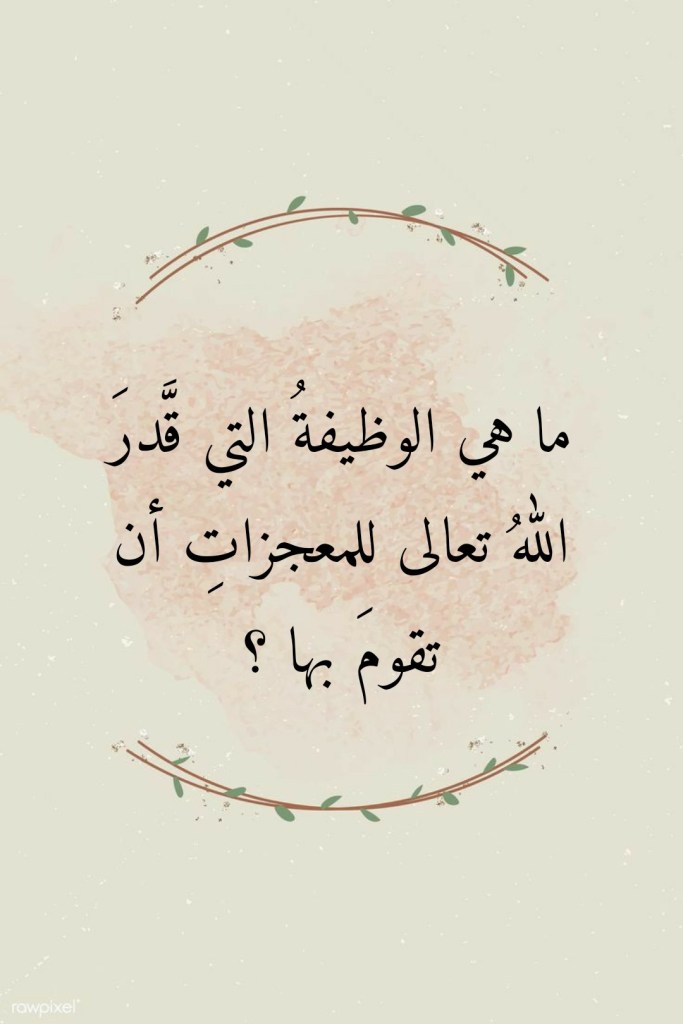 ما هي الوظيفةُ التي قَّدرَ
اللهُ تعالى للمعجزاتِ أن
تقومَ بها ؟
rawpixel